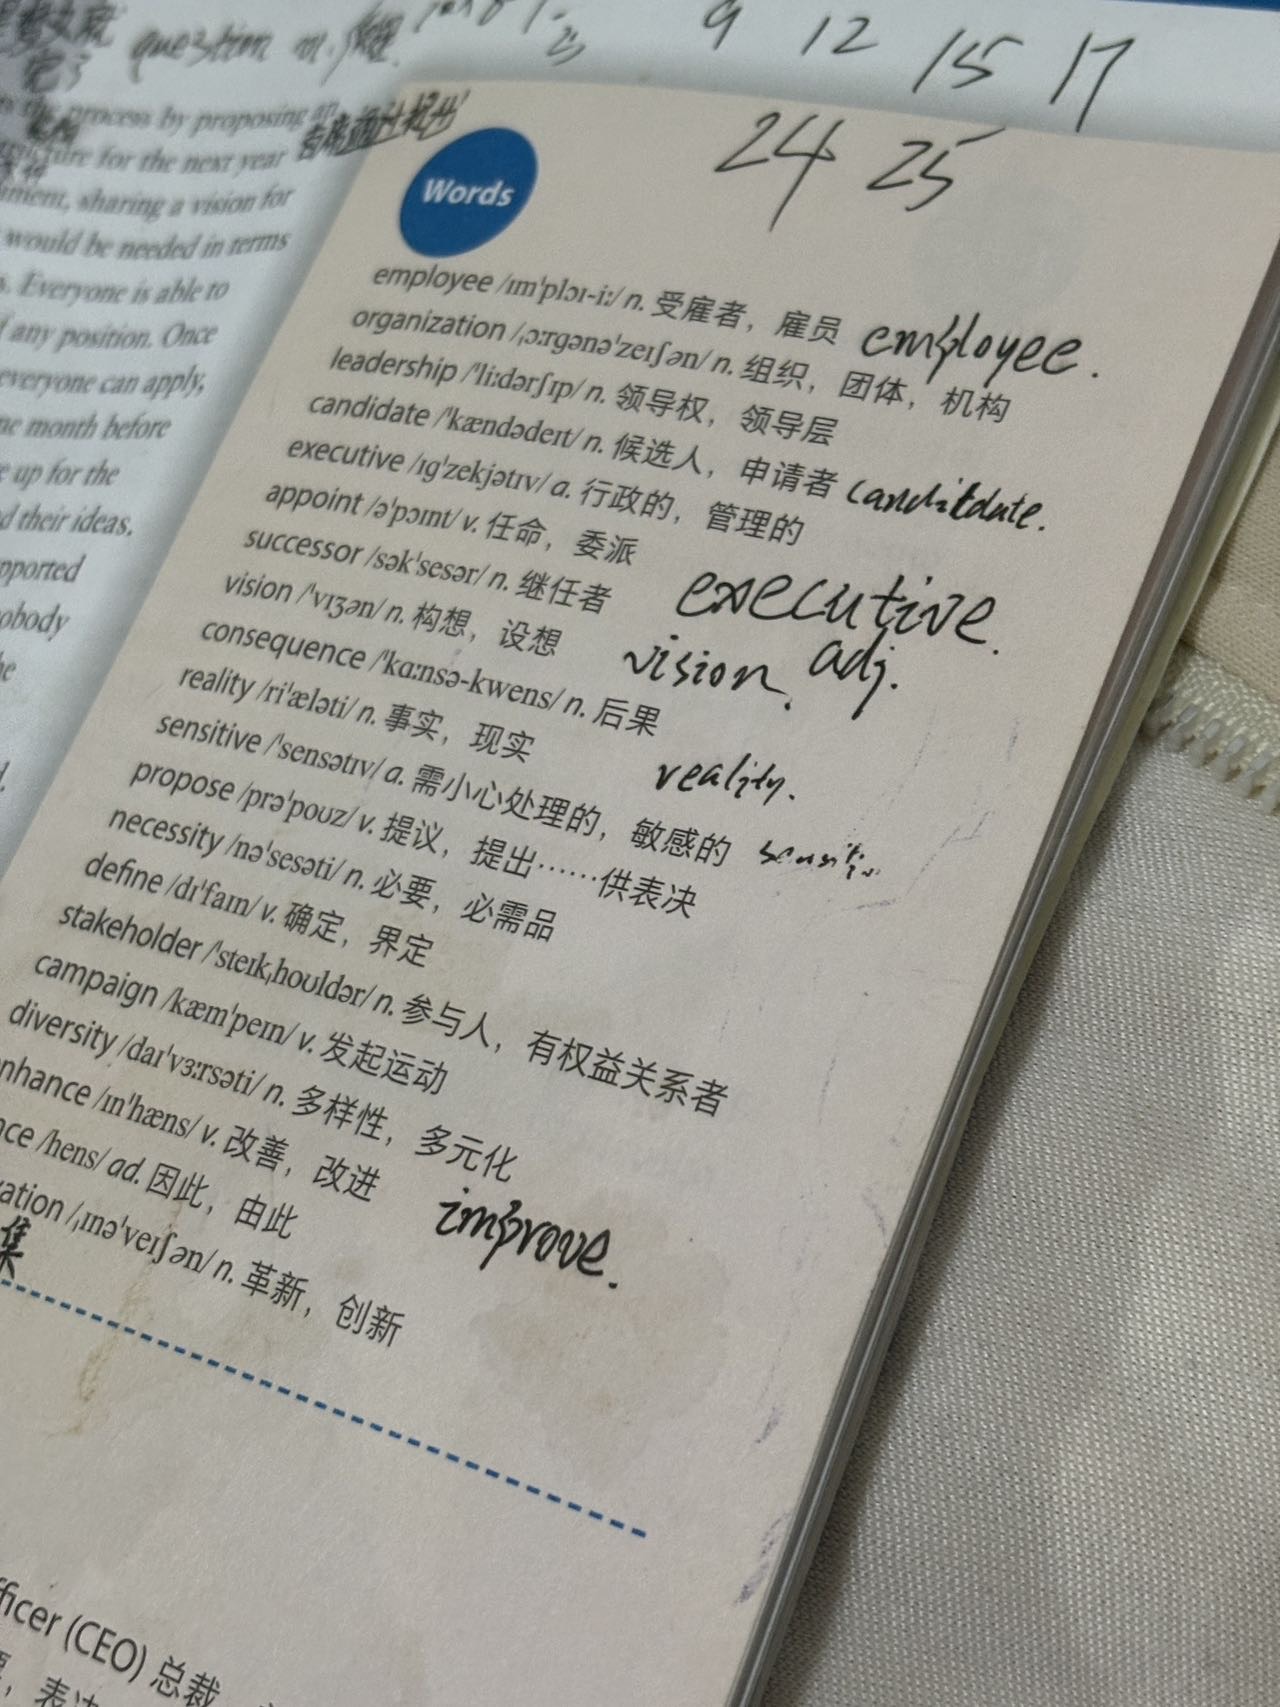 question n.
9 12 15 17
24 25
process by proposing an
for the next year
sharing a vision for
would be needed in terms
Everyone is able to
any position. Once
everyone can apply,
month before
up for the
their ideas.
Words
employee /ɪmˈplɔɪ-iː/ n. 受雇者，雇员 employee.
organization /ˌɔːrɡənəˈzeɪʃən/ n. 组织，团体，机构
leadership /ˈliːdərʃɪp/ n. 领导权，领导层
candidate /ˈkændədeɪt/ n. 候选人，申请者 canditdate.
executive /ɪɡˈzekjətɪv/ a. 行政的，管理的
appoint /əˈpɔɪnt/ v. 任命，委派
executive.
successor /səkˈsesər/ n. 继任者
adj.
vision /ˈvɪʒən/ n. 构想，设想 vision.
consequence /ˈkɑːnsə-kwens/ n. 后果
reality /riˈæləti/ n. 事实，现实 reality.
sensitive /ˈsensətɪv/ a. 需小心处理的，敏感的
propose /prəˈpoʊz/ v. 提议，提出……供表决
necessity /nəˈsesəti/ n. 必要，必需品
define /dɪˈfaɪn/ v. 确定，界定
stakeholder /ˈsteɪkˌhoʊldər/ n. 参与人，有权益关系者
campaign /kæmˈpeɪn/ v. 发起运动
diversity /daɪˈvɜːrsəti/ n. 多样性，多元化
nhance /ɪnˈhæns/ v. 改善，改进
improve.
nce /hens/ ad. 因此，由此
vation /ˌɪnəˈveɪʃən/ n. 革新，创新
集
fficer (CEO) 总裁
，表决